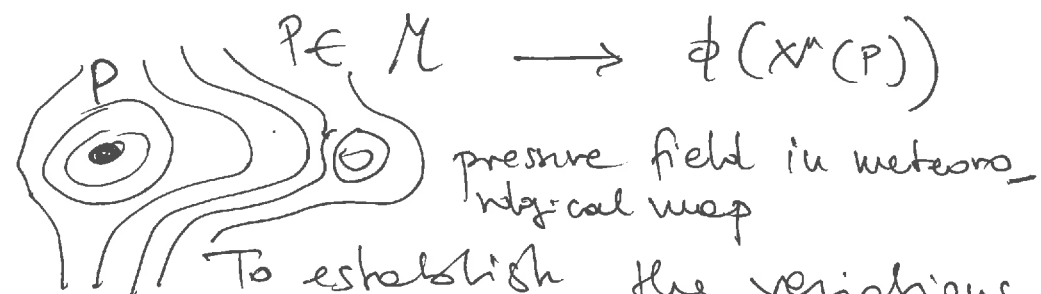 P∈ M → ϕ(x^μ(P))
P
pressure field in meteoro_
logical map
To establish the variations